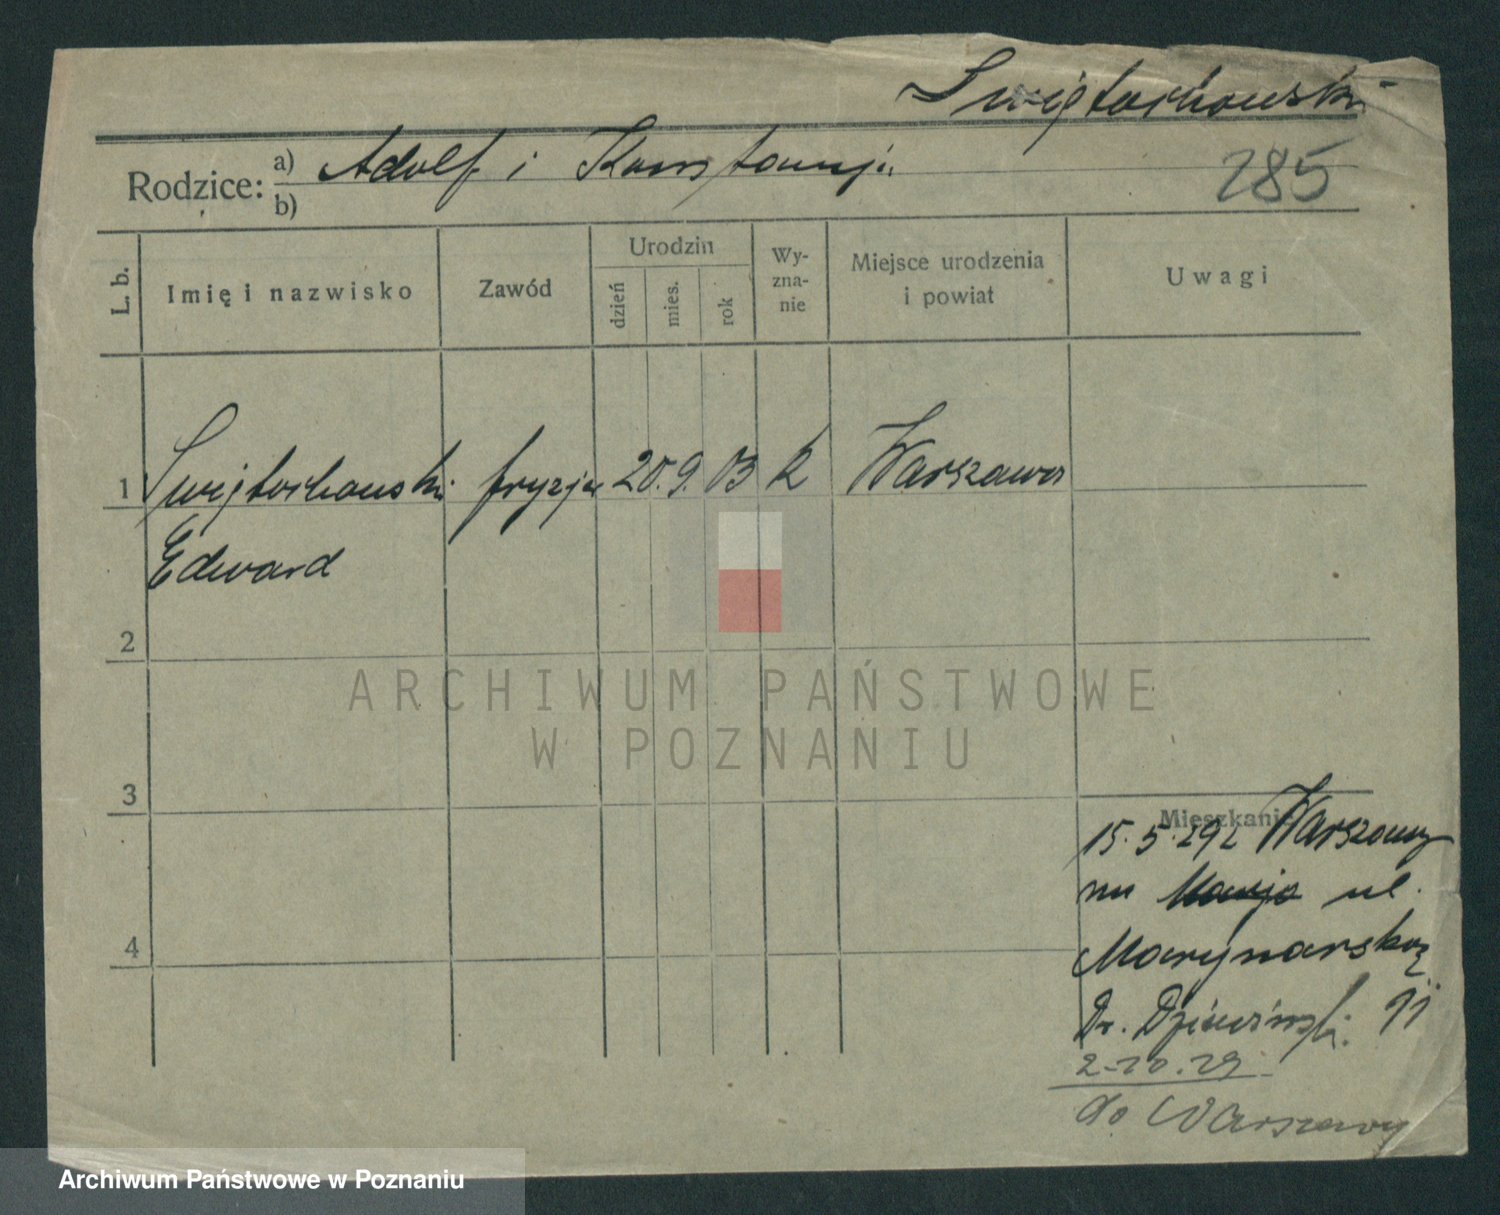 Swiętochowski
Rodzice: a) Adolf i Konstancja
b)
285
L. b.
Imię i nazwisko
Zawód
Urodzin
dzień
mies.
rok
Wy-
zna-
nie
Miejsce urodzenia
i powiat
Uwagi
1 Swiętochowski fryzjer 20. 9. 03 k Warszawa
Edward
2
3
4
Mieszkanie
15.5.29 z Warszawy
na ul.
Marynarską
Dr. 11
2-10.29
do Warszawy
ARCHIWUM PAŃSTWOWE
W POZNANIU
Archiwum Państwowe w Poznaniu